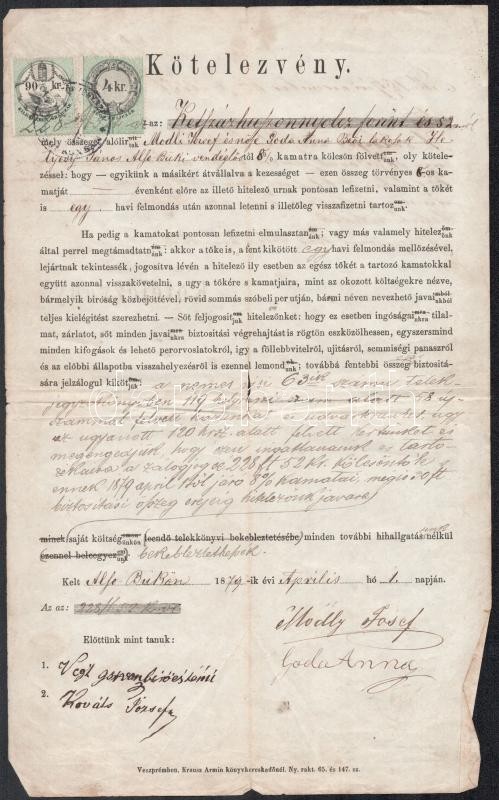 90 kr.
4 kr.
Kötelezvény.
az az: Kétszázhuszonnyolcz forint és 52
mely összeget alólirt Modli József és neje Goda Anna
János Alsó Büki vendéglőstől 8% kamatra kölcsön fölvett, oly kötele-
zéssel: hogy — egyikünk a másikért átvállalva a kezességet — ezen összeg törvényes 6-os ka-
matját évenként előre az illető hitelező urnak pontosan lefizetni, valamint a tőkét
is egy havi felmondás után azonnal letenni s illetőleg visszafizetni tartoz
Ha pedig a kamatokat pontosan lefizetni elmulasztan; vagy más valamely hitelez
által perrel megtámadtatn: akkor a tőke is, a fent kikötött egy havi felmondás mellőzésével,
lejártnak tekintessék, jogositva lévén a hitelező ily esetben az egész tőkét a tartozó kamatokkal
együtt azonnal visszakövetelni, s ugy a tőkére s kamatjaira, mint az okozott költségekre nézve,
bármelyik biróság közbejöttével, rövid sommás szóbeli per utján, bármi néven nevezhető javai
teljes kielégitést szerezhetni. — Sőt feljogosit hitelezőnket: hogy ez esetben ingóságai tilal-
mat, zárlatot, sőt minden javai biztositási végrehajtást is rögtön eszközölhessen, egyszersmind
minden kifogások és lehető perorvoslatokról, igy a föllebbvitelről, ujitásról, semmiségi panaszról
és az előbbi állapotba visszahelyezésről is ezennel lemond; továbbá fentebbi összeg biztositá-
sára jelzálogul kiköt: a nemes 63 ik számú telek-
jegyzőkönyvben 119 helyrajzi szám alatt 78 uj
számmal felvett házunkat és udvarunkat, ugy
az ugyanott 120 hrsz. alatt felvett kertünket és
megengedjük, hogy ezen ingatlanaink és tarto-
zékaira a zálogjog 228 ft 52 kr. kölcsöntőke
ennek 1879 április 1től járó 8% kamatai, megis 50 ft
biztositási összeg erejéig hitelezőnk javára
minek saját költség (leendő telekkönyvi bekebleztetésébe) minden további kihallgatás nélkül
ezennel beleegyez bekebleztethessék.
Kelt Alsó Bükön 1879-ik évi Április hó 1. napján.
Az az: 228 ft 52 kr
Modly Josef
Goda Anna
Előttünk mint tanuk:
1. Végh
2. Kováts József
Veszprémben, Krausz Armin könyvkereskedőnél. Ny. rakt. 65. és 147. sz.